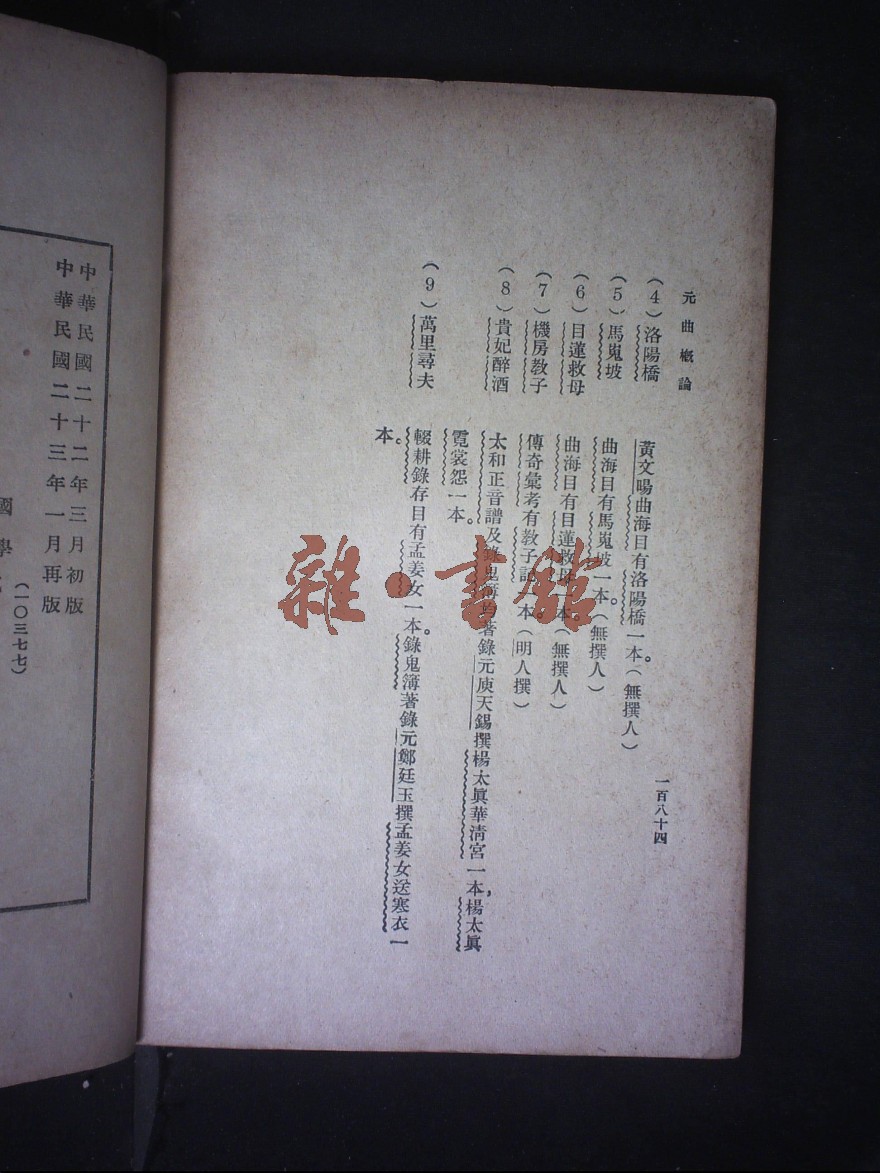 元曲概論
一百八十四
(4)洛陽橋
黃文暘曲海目有洛陽橋一本。(無撰人)
(5)馬嵬坡
曲海目有馬嵬坡一本。(無撰人)
(6)目蓮救母
曲海目有目蓮救母一本。(無撰人)
(7)機房教子
傳奇彙考有教子記一本。(明人撰)
(8)貴妃醉酒
太和正音譜及錄鬼簿均著錄元庾天錫撰楊太眞華淸宮一本,楊太眞
霓裳怨一本。
(9)萬里尋夫
輟耕錄存目有孟姜女一本。錄鬼簿著錄元鄭廷玉撰孟姜女送寒衣一
本。
中華民國二十二年三月初版
中華民國二十三年一月再版
(一〇三七七)
國學
雜·書館